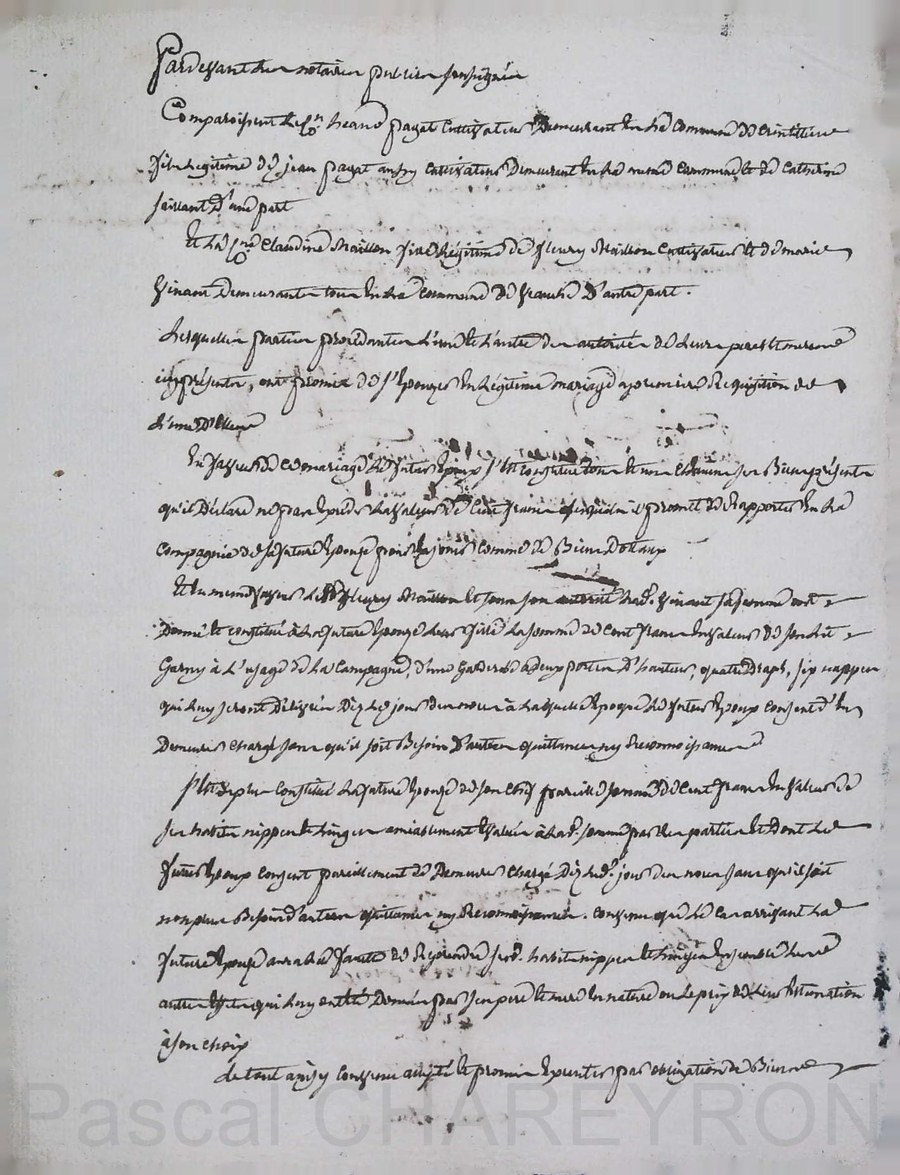 Pardevant les notaires publics soussignés
Comparoissent le Cn payat Cultivateur Demeurant En la Commune de
fils legitime de Jean payat aussy Cultivateur Demeurant En la même Commune et de Catherine
D'une part
Et la Cne Claudine Maillon fille Légitime de fleury Maillon Cultivateur et de marie
Vinant Demeurants tous En la Commune de D'autre part.
Lesquelles parties procédantes L'une et L'autre des autorités de Leurs peres et meres
icy présents, ont promis de s'Epouser En Légitime mariage a premiere Requisition de
L'une D'elles
En faveur de ce mariage le futur Epoux s'Est constitué tous et uns Chacuns ses Biens présents
qu'il Déclare ne pas Exceder La valeur de Cent francs promet de Rapporter En La
Compagnie de sa future Epouse comme de Biens Dotaux
Et en meme faveur Led. fleury Maillon et sous son autorité Lad. Vinant sa femme ont
Donné et constitué à La future Epouse Leur fille La somme de Cent francs En valeur de son Lit
Garny à L'usage de La Campagne, D'une Garderobe a deux portes D'hauteur, quatre Draps, six nappes
qui Luy seront Délivrés Dès Le jour des noces à Laquelle Epoque Le futur Epoux consent D'En
Demeurer chargé sans qu'il soit Besoin D'autres quittances ny Reconnoissances
s'Est de plus Constitué La future Epouse de son Chef pareille somme de Cent francs En valeur de
ses habits nippes et Linges amiablement Evalués à Lad. somme par Les parties Et Dont Le
futur Epoux Consent pareillement de Demeurer Chargé Dès Led. jour des noces sans qu'il soit
non plus Besoin d'autres quittances ny Reconnoissances. Convenu que Le Cas arrivant La
future Epouse aura La faculté de Reprendre sesd. habits nippes et Linges Ensemble Les
autres Effets qui Luy ont été Donnés par ses pere et mere En nature ou Le prix de Leur Estimation
à son choix
de tout ainsy Convenu accepté Et promis Executer par obligation de Biens
Pascal CHAREYRON